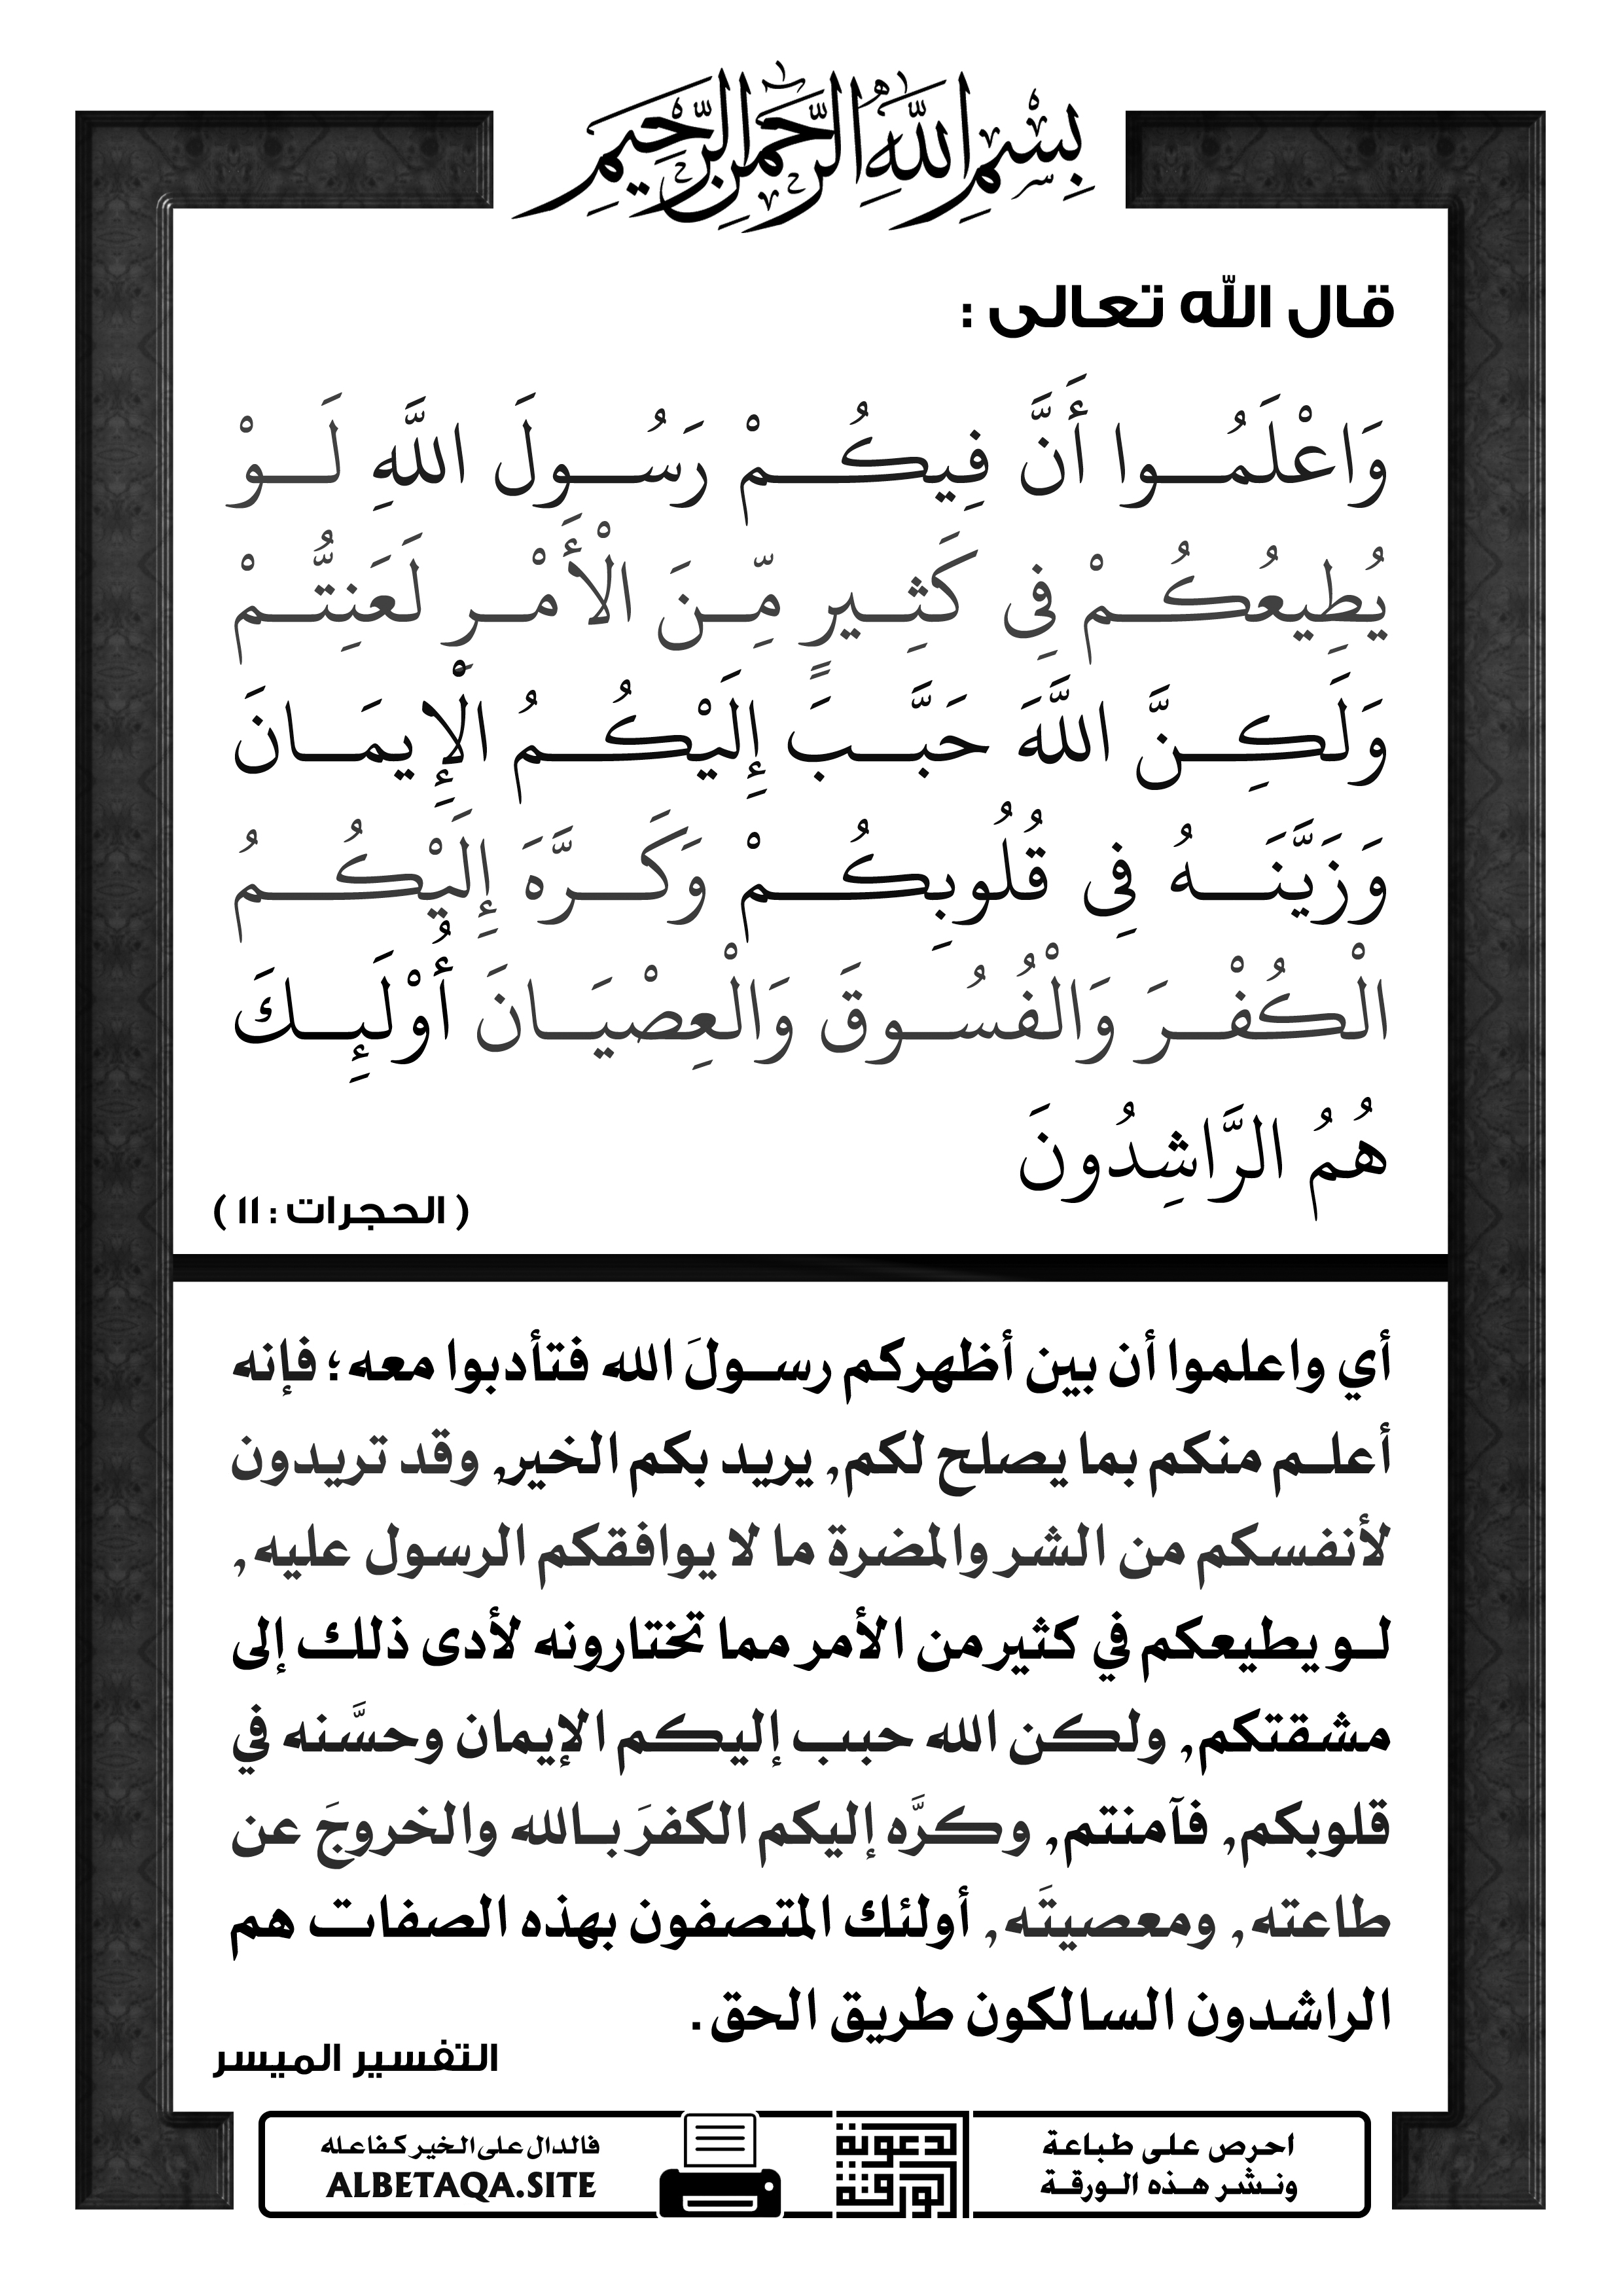 بِسْمِ اللَّهِ الرَّحْمَنِ الرَّحِيمِ
قال الله تعالى :
وَاعْلَمُوا أَنَّ فِيكُمْ رَسُولَ اللَّهِ لَوْ
يُطِيعُكُمْ فِي كَثِيرٍ مِّنَ الْأَمْرِ لَعَنِتُّمْ
وَلَكِنَّ اللَّهَ حَبَّبَ إِلَيْكُمُ الْإِيمَانَ
وَزَيَّنَهُ فِي قُلُوبِكُمْ وَكَرَّهَ إِلَيْكُمُ
الْكُفْرَ وَالْفُسُوقَ وَالْعِصْيَانَ أُوْلَئِكَ
هُمُ الرَّاشِدُونَ
( الحجرات : ١١ )
أي واعلموا أن بين أظهركم رسولَ الله فتأدبوا معه؛ فإنه
أعلم منكم بما يصلح لكم, يريد بكم الخير, وقد تريدون
لأنفسكم من الشر والمضرة ما لا يوافقكم الرسول عليه,
لو يطيعكم في كثير من الأمر مما تختارونه لأدى ذلك إلى
مشقتكم, ولكن الله حبب إليكم الإيمان وحسَّنه في
قلوبكم, فآمنتم, وكرَّه إليكم الكفرَ بالله والخروجَ عن
طاعته, ومعصيتَه, أولئك المتصفون بهذه الصفات هم
الراشدون السالكون طريق الحق.
التفسير الميسر
احرص على طباعة
ونشر هذه الورقة
الدعوية
الورقة
فالدال على الخير كفاعله
ALBETAQA.SITE